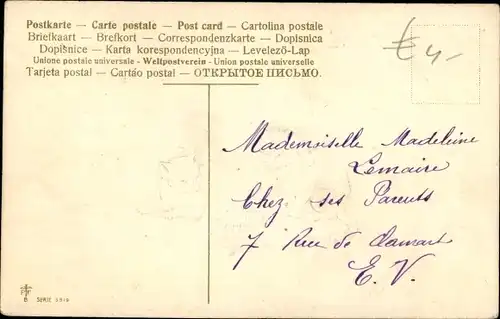 Postkarte — Carte postale — Post card — Cartolina postale
Briefkaart — Brefkort — Correspondenzkarte — Dopisnica
Dopišnice — Karta korespondencyjna — Levelező-Lap
Unione postale universale - Weltpostverein - Union postale universelle
Tarjeta postal — Cartáo postal — ОТКРЫТОЕ ПИСЬМО.
€ 4-
Mademoiselle Madeleine
Lemaire
Chez ses Parents
7 Rue de Clamart
E. V.
SERIE